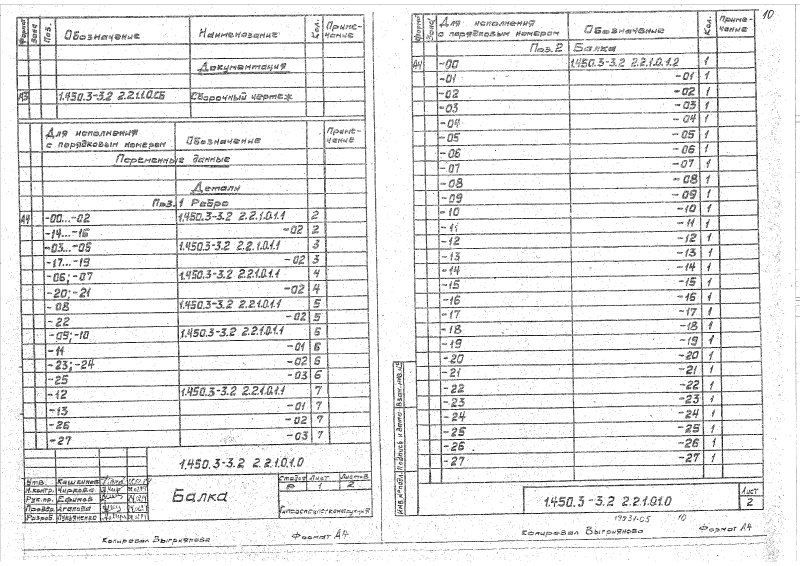 Формат Зона Поз. Обозначение Наименование Кол. Приме-чание
Документация
А3 1.450.3-3.2 2.2.1.0.1.0СБ Сборочный чертеж
Для исполнения с порядковым номером Обозначение Приме-чание
Переменные данные
Детали
Поз. 1 Ребро
А4 -00...-02 1.450.3-3.2 2.2.1.0.1.1 2
-14...-16 -02 2
-03...-05 1.450.3-3.2 2.2.1.0.1.1 3
-17...-19 -02 3
-06;-07 1.450.3-3.2 2.2.1.0.1.1 4
-20;-21 -02 4
-08 1.450.3-3.2 2.2.1.0.1.1 5
-22 -02 5
-09;-10 1.450.3-3.2 2.2.1.0.1.1 6
-11 -01 6
-23;-24 -02 6
-25 -03 6
-12 1.450.3-3.2 2.2.1.0.1.1 7
-13 -01 7
-26 -02 7
-27 -03 7
1.450.3-3.2 2.2.1.0.1.0
Утв.
Н.контр. Чиркова
Рук.пр. Ефимов
Провер. Агапова
Разраб. Лукьяненко
Балка
Стадия Лист Листов
Р 1 2
Копировал Выгриянова Формат А4
10
Формат Зона Для исполнения с порядковым номером Обозначение Кол. Приме-чание
Поз. 2 Балка
А4 -00 1.450.3-3.2 2.2.1.0.1.2 1
-01 -01 1
-02 -02 1
-03 -03 1
-04 -04 1
-05 -05 1
-06 -06 1
-07 -07 1
-08 -08 1
-09 -09 1
-10 -10 1
-11 -11 1
-12 -12 1
-13 -13 1
-14 -14 1
-15 -15 1
-16 -16 1
-17 -17 1
-18 -18 1
-19 -19 1
-20 -20 1
-21 -21 1
-22 -22 1
-23 -23 1
-24 -24 1
-25 -25 1
-26 -26 1
-27 -27 1
Инв.№подл. Подпись и дата Взам.инв.№
1.450.3-3.2 2.2.1.0.1.0
Лист
2
19931-05 10
Копировал Выгриянова Формат А4